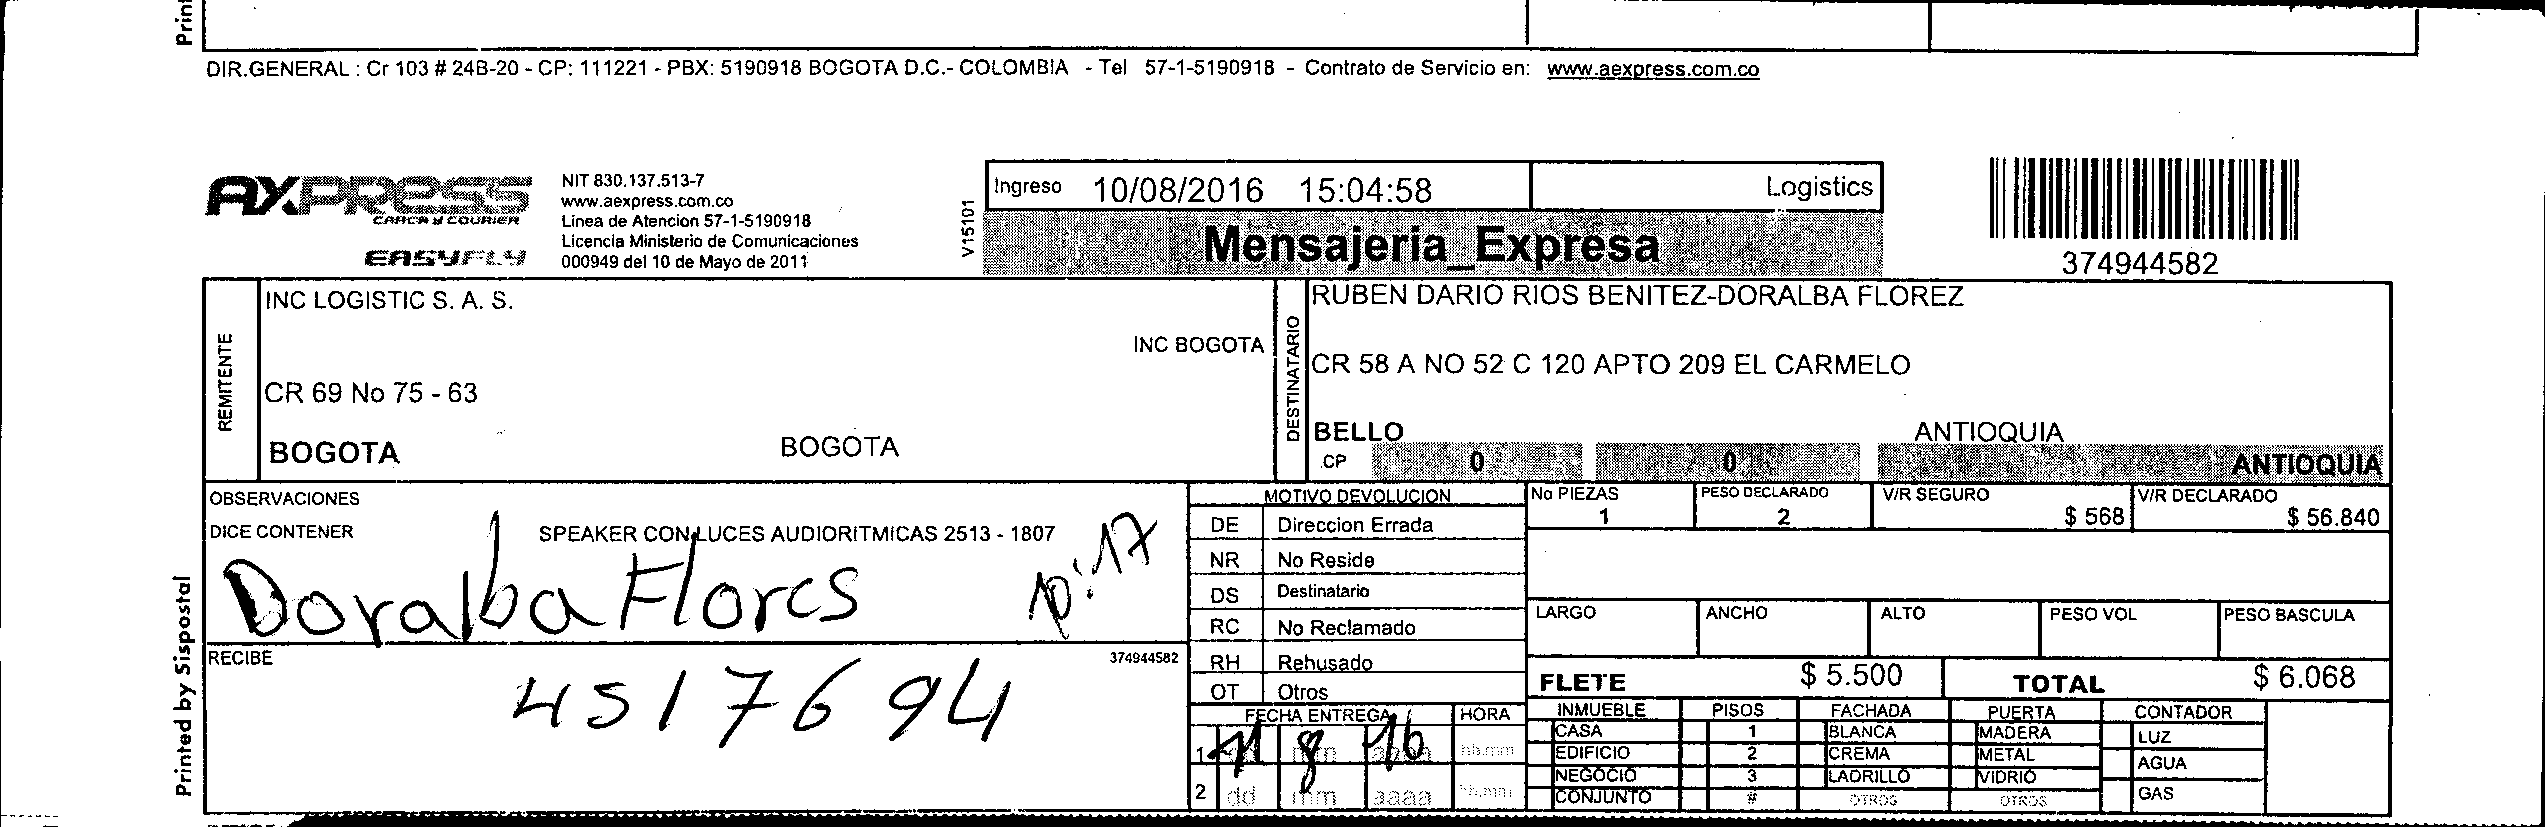 DIR.GENERAL : Cr 103 # 24B-20 - CP: 111221 - PBX: 5190918 BOGOTA D.C.- COLOMBIA - Tel 57-1-5190918 - Contrato de Servicio en: www.aexpress.com.co
AXPRESS
CARGA Y COURIER
EASYFLY
NIT 830.137.513-7
www.aexpress.com.co
Linea de Atencion 57-1-5190918
Licencia Ministerio de Comunicaciones
000949 del 10 de Mayo de 2011
V15101
Ingreso 10/08/2016 15:04:58 Logistics
Mensajeria_Expresa
374944582
REMITENTE
INC LOGISTIC S. A. S.
INC BOGOTA
CR 69 No 75 - 63
BOGOTA BOGOTA
DESTINATARIO
RUBEN DARIO RIOS BENITEZ-DORALBA FLOREZ
CR 58 A NO 52 C 120 APTO 209 EL CARMELO
BELLO ANTIOQUIA
CP 0 0 ANTIOQUIA
OBSERVACIONES
DICE CONTENER SPEAKER CON LUCES AUDIORITMICAS 2513 - 1807
Doralba Flores
RECIBE 374944582
4517694
MOTIVO DEVOLUCION
DE Direccion Errada
NR No Reside
DS Destinatario
RC No Reclamado
RH Rehusado
OT Otros
FECHA ENTREGA HORA
1 11 8 16 hh:mm
2 dd mm aaaa hh:mm
No PIEZAS PESO DECLARADO V/R SEGURO V/R DECLARADO
1 2 $ 568 $ 56.840
LARGO ANCHO ALTO PESO VOL PESO BASCULA
FLETE $ 5.500 TOTAL $ 6.068
INMUEBLE PISOS FACHADA PUERTA CONTADOR
CASA 1 BLANCA MADERA LUZ
EDIFICIO 2 CREMA METAL AGUA
NEGOCIO 3 LADRILLO VIDRIO
CONJUNTO # OTROS OTROS GAS
Printed by Sispostal